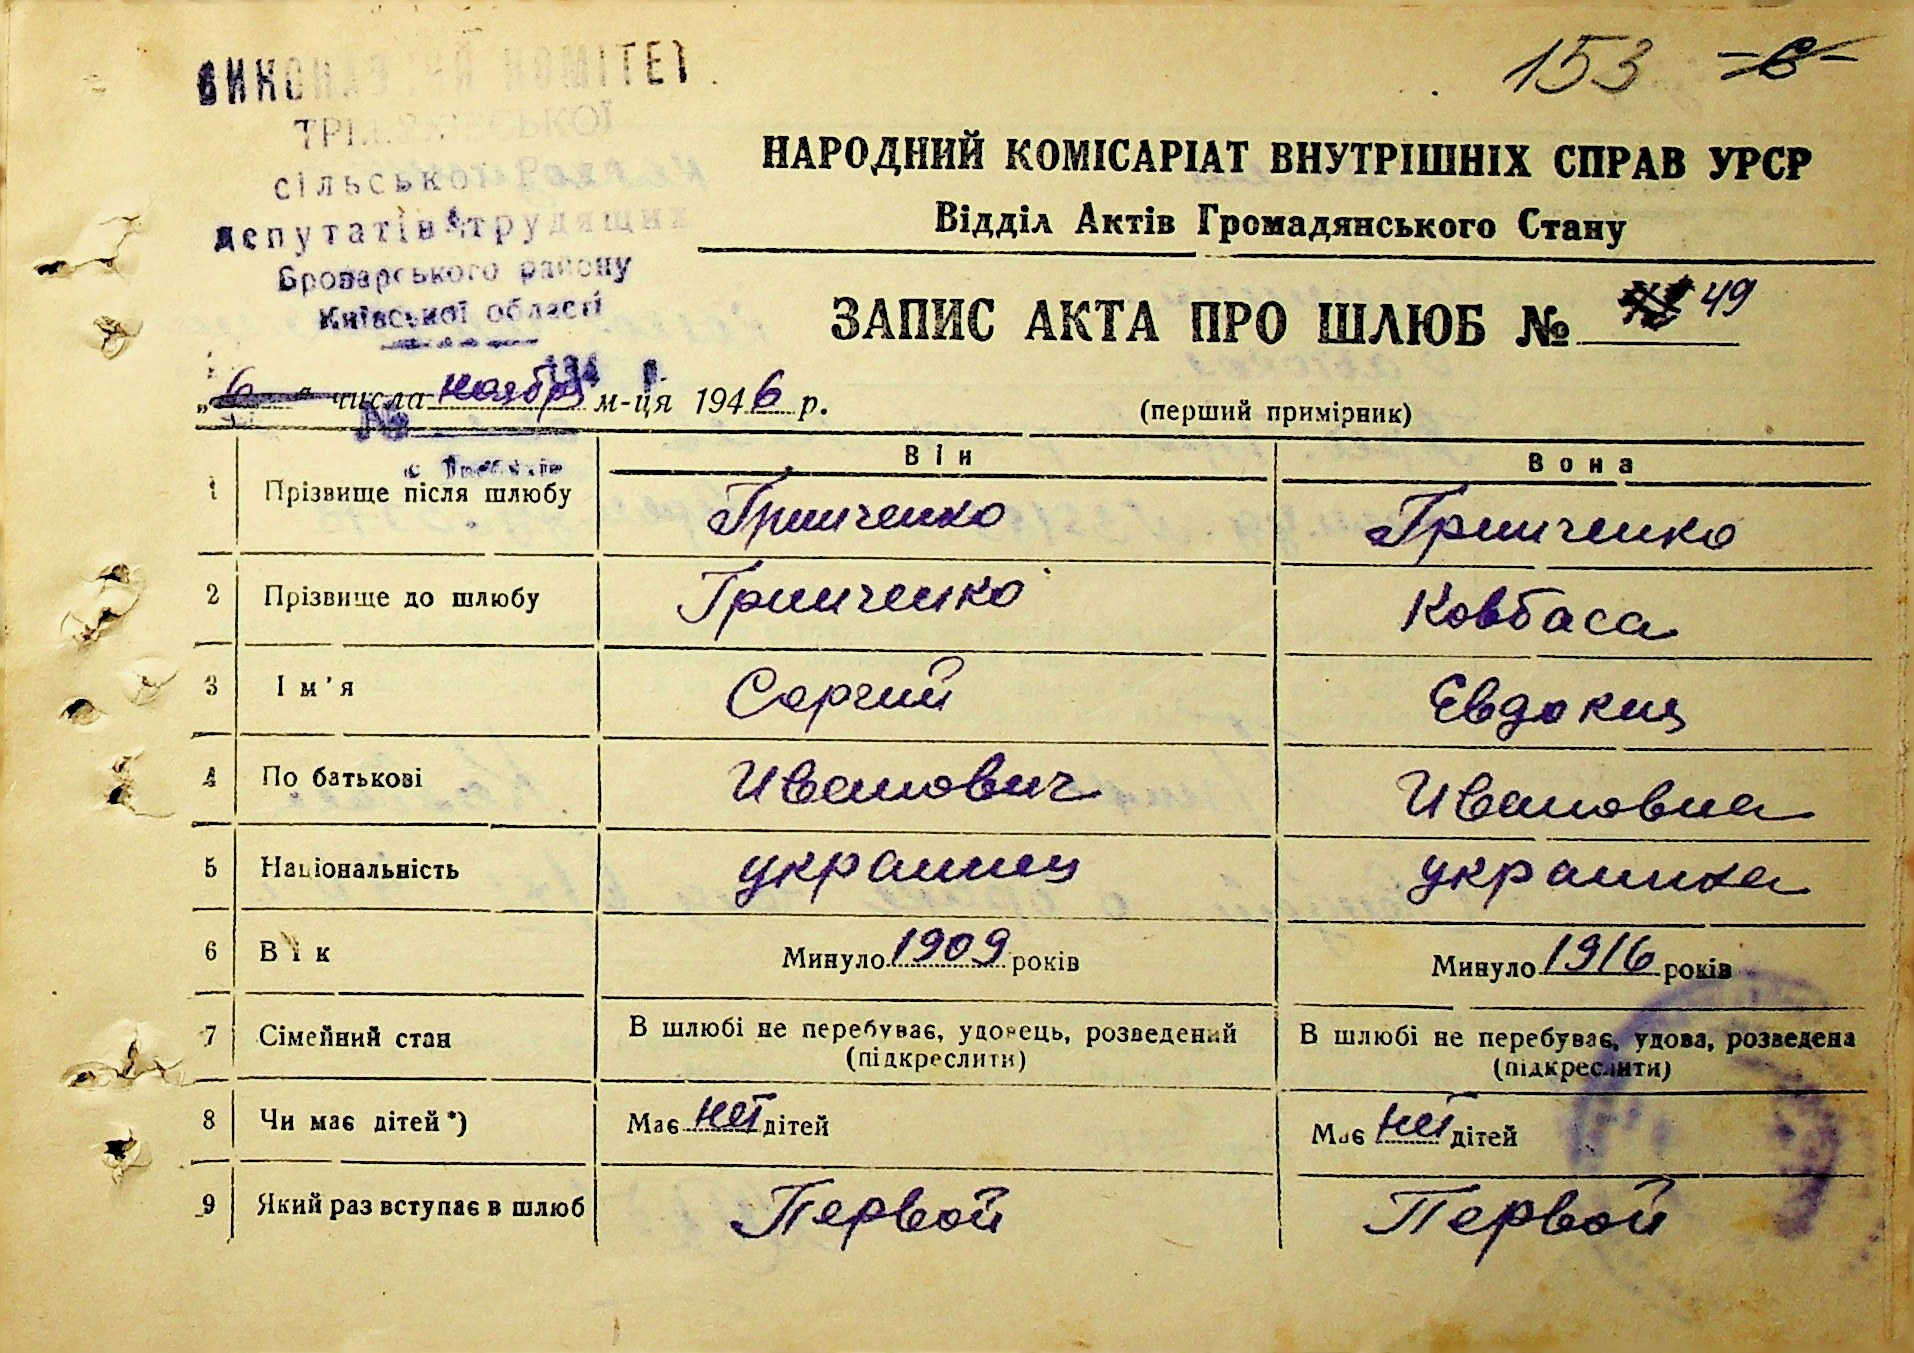 153
ВИКОНАВЧИЙ КОМІТЕТ
сільської Ради
депутатів трудящих
Броварського району
Київської області
НАРОДНИЙ КОМІСАРІАТ ВНУТРІШНІХ СПРАВ УРСР
Відділ Актів Громадянського Стану
ЗАПИС АКТА ПРО ШЛЮБ № 49
194 р.
„6“ числа ноября м-ця 1946 р.
(перший примірник)
№
Він Вона
1 Прізвище після шлюбу Гринченко Гринченко
2 Прізвище до шлюбу Гринченко Ковбаса
3 Ім'я Сергий Евдокия
4 По батькові Иванович Ивановна
5 Національність украинец украинка
6 Вік Минуло 1909 років Минуло 1916 років
7 Сімейний стан В шлюбі не перебуває, удовець, розведений В шлюбі не перебуває, удова, розведена
(підкреслити) (підкреслити)
8 Чи має дітей*) Має нет дітей Має нет дітей
9 Який раз вступає в шлюб Первой Первой